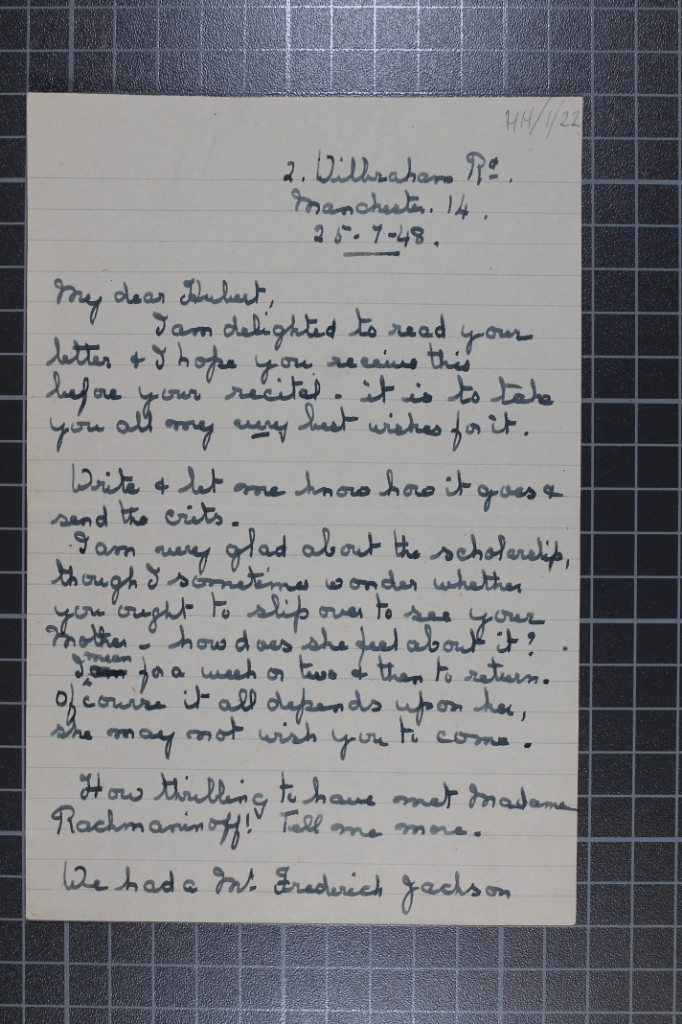 HH/1/22
2. Wilbraham Rd.
Manchester. 14.
25-7-48.
My dear Hubert,
I am delighted to read your
letter & I hope you receive this
before your recital - it is to take
you all my very best wishes for it.
Write & let me know how it goes &
send the crits.
I am very glad about the scholarship,
though I sometimes wonder whether
you ought to slip over to see your
Mother - how does she feel about it?
I mean for a week or two & then to return.
Of course it all depends upon her,
she may not wish you to come.
How thrilling to have met Madame
Rachmaninoff! Tell me more.
We had a Mr. Frederich Jackson